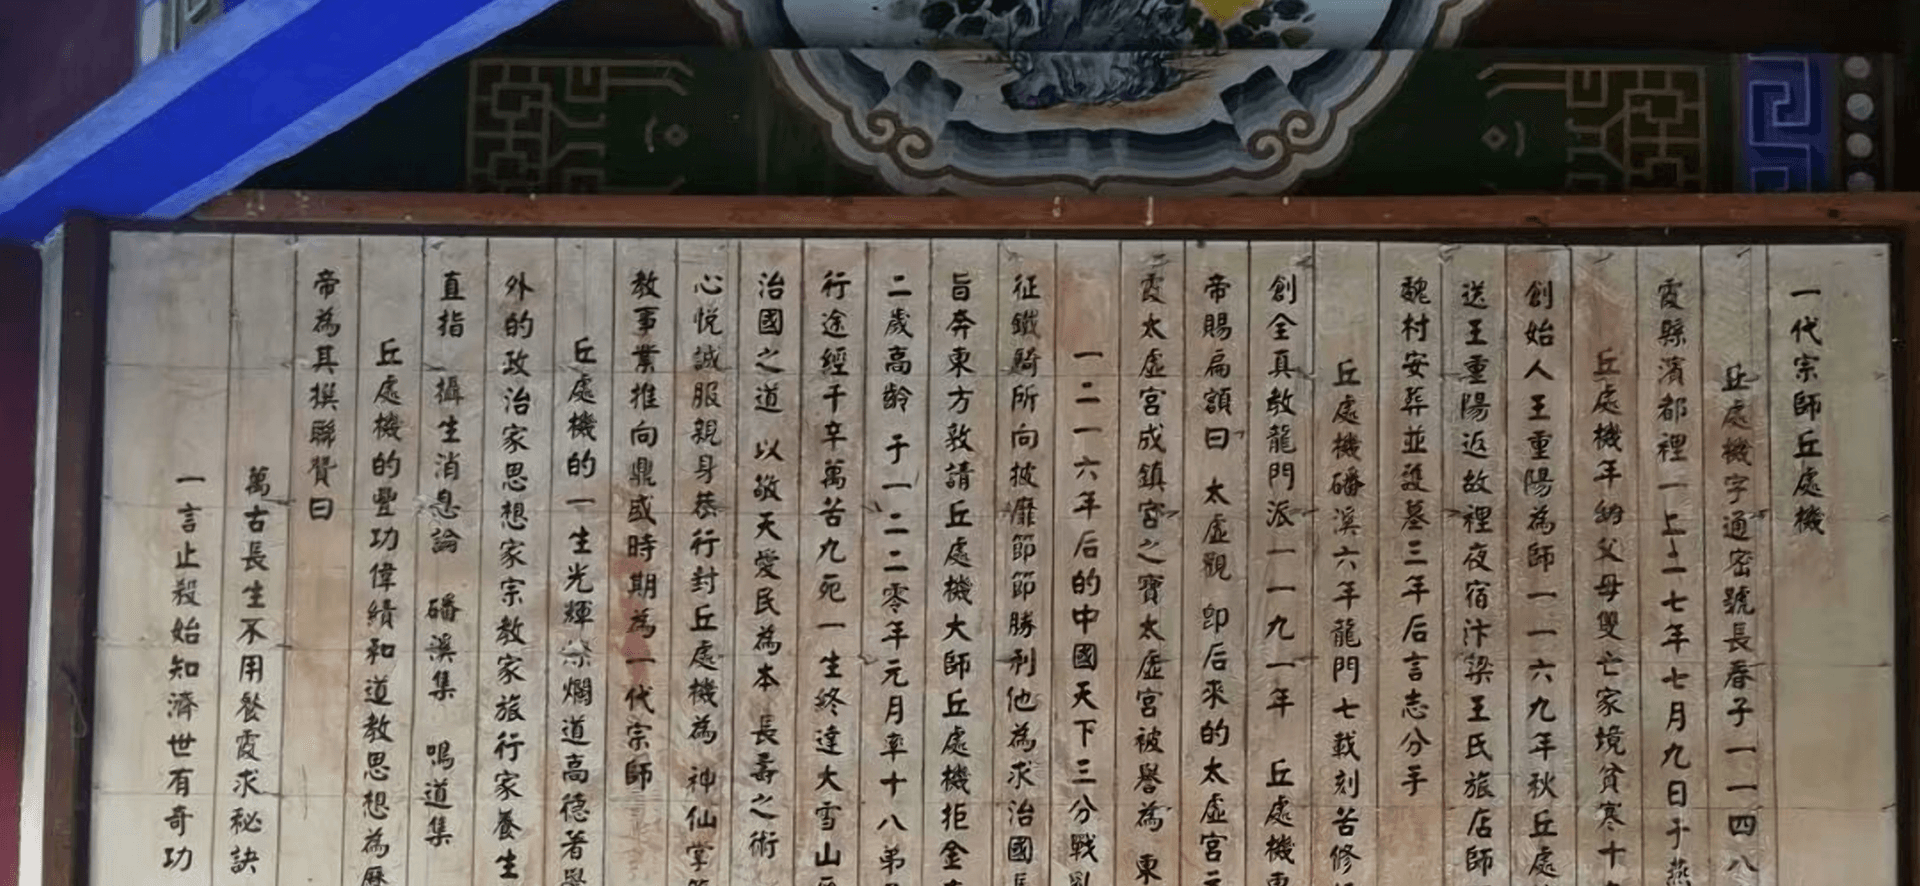 一代宗師丘處機
丘處機字通密號長春子一一四八
霞縣濱都裡一上二七年七月九日于燕
丘處機年幼父母雙亡家境貧寒十
創始人王重陽為師一一六九年秋丘處
送王重陽返故裡夜宿汴梁王氏旅店師
魏村安葬並護墓三年后言志分手
丘處機磻溪六年龍門七載刻苦修
創全真教龍門派一一九一年 丘處機東
帝賜扁額曰 太虛觀 即后來的太虛宮元
霞太虛宮成鎮宮之寶太虛宮被譽為 東
一二一六年后的中國天下三分戰亂
征鐵騎所向披靡節節勝利他為求治國長
旨奔東方敦請丘處機大師丘處機拒金
二歲高齡 于一二二零年元月率十八弟
行途經千辛萬苦九死一生終達大雪山
治國之道 以敬天愛民為本 長壽之術
心悅誠服親身恭行封丘處機為 神仙掌
教事業推向鼎或時期為一代宗師
丘處機的一生光輝燦爛道高德著譽
外的政治家思想家宗教家旅行家養生
直指 攝生消息論 磻溪集 鳴道集
丘處機的豐功偉績和道教思想為歷
帝為其撰聯贊曰
萬古長生不用餐霞求秘訣
一言止殺始知濟世有奇功